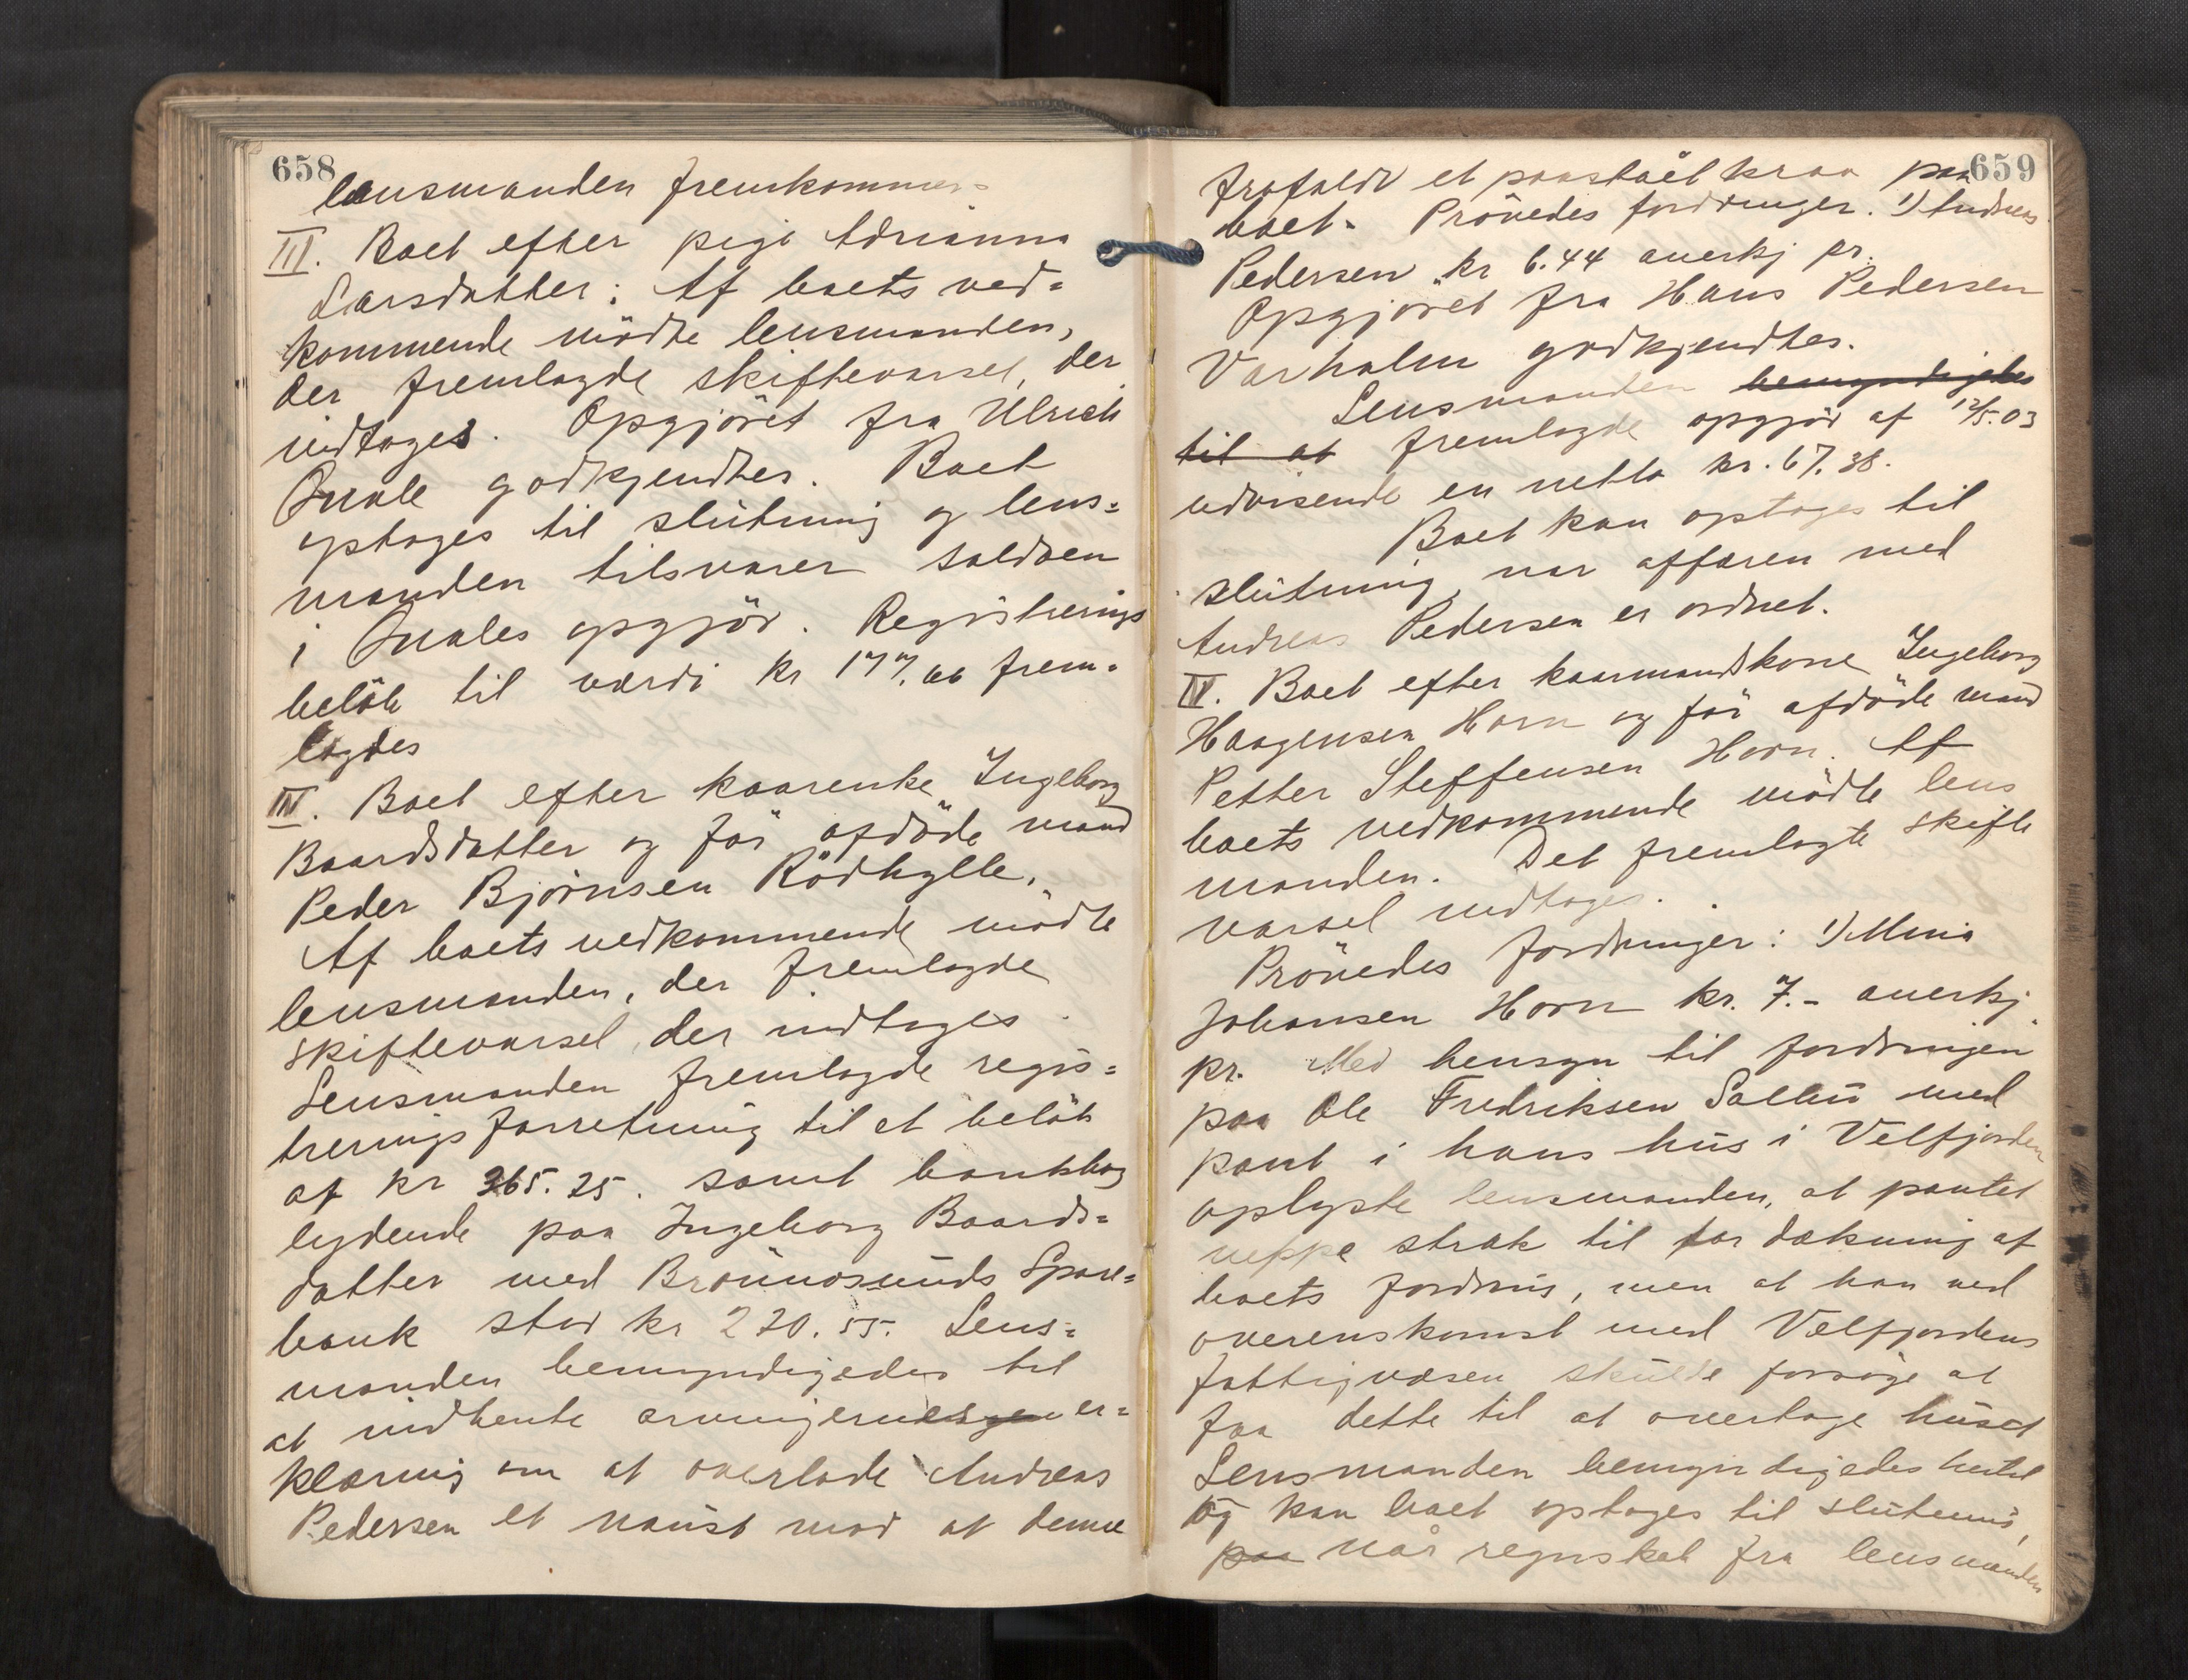 658
lensmanden fremkommer.
III. Boet efter pige Adrianna
Larsdatter: Af boets ved=
kommende mödte lensmanden,
der fremlagde skiftevarsel, der
indtages. Opgjöret fra Ulrich
Qvale godkjendtes. Boet
optages til slutning og lens=
manden tilsvarer saldoen
i Qvales opgjör. Registrerings
belöb til værdi kr 177.00 frem=
lagdes
IV. Boet efter kaarenke Ingeborg
Baardsdatter og för afdöde mand
Peder Björnsen Rödhylle.
Af boets vedkommende mödte
lensmanden, der fremlagde
skiftevarsel, der indtages.
Lensmanden fremlagde regis=
treringsforretning til et belöb
af kr 365.25. samt bankbog
lydende paa Ingeborg Baards=
datter med Brönnösunds Spare=
bank stor kr 220.55. Lens=
manden bemyndigedes til
at indhente arvingernes er=
klæring om at overlade Andreas
Pedersen et naust mod at denne
659
frafaldt et paastaaet krav paa
boet. Prövedes fordringer. 1) Andreas
Pedersen kr 6.44 anerkj pr.
Opgjöret fra Hans Pedersen
Varholm godkjendtes.
Lensmanden bemyndigedes
til at fremlagde opgjör af 12/5.03
udvisende en netto kr. 67.38.
Boet kan optages til
slutning, nar affæren med
Andreas Pedersen er ordnet.
IV. Boet efter kaarmandskone Ingeborg
Haagensen Horn og för afdöde mand
Petter Steffensen Horn. Af
boets vedkommende mödte lens
manden. Det fremlagte skifte
varsel indtages.
Prövedes fordringer: 1) Mina
Johansen Horn kr. 7.- anerkj
pr. Med hensyn til fordringen
paa Ole Fredriksen Sæthü med
pant i hans hus i Velfjorden
oplyste lensmanden, at pantet
neppe strak til for dækning af
boets fordring, men at han ved
overenskomst med Velfjordens
fattigvæsen skulde forsöge at
faa dette til at overtage huset
Lensmanden bemyndigedes hertil
og kan boet optages til slutning,
paa når regnskab fra lensmanden